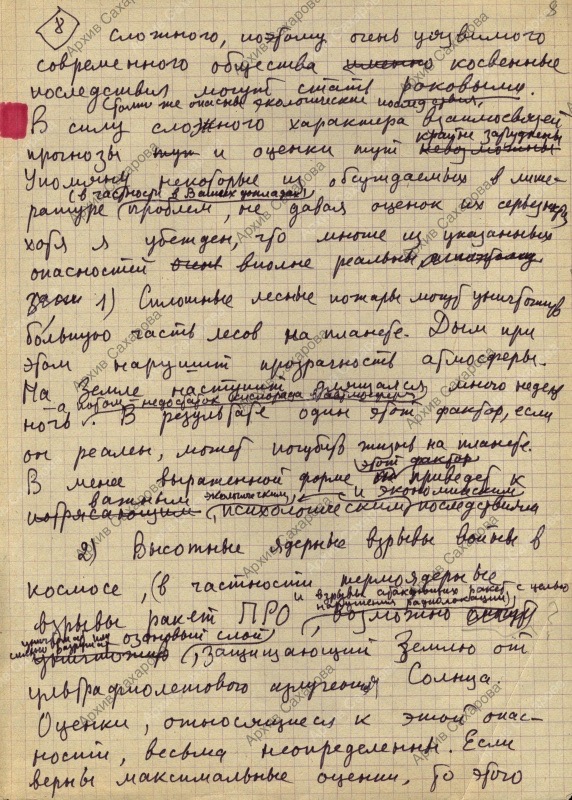 8
8
сложного, поэтому очень уязвимого
современного общества именно косвенные
последствия могут стать роковыми.
(Столь же опасны экологические последствия.
В силу сложного характера взаимосвязей
прогнозы тут и оценки тут крайне затруднены
невозможны
Упомяну некоторые из обсуждаемых в лите-
(в частности в Ваших докладах)
ратуре проблем, не давая оценок их серьезности,
хотя я убежден, что многие из указанных
опасностей вполне реальны
1) Сплошные лесные пожары могут уничтожить
бо́льшую часть лесов на планете. Дым при
этом нарушит прозрачность атмосферы.
На Земле наступит длящаяся много недель
ночь, а потом недостаток кислорода в атмосфере.
В результате один этот фактор, если
он реален, может погубить жизнь на планете.
В менее выраженной форме этот фактор приведет к
важным экологическим, и экономическим
потрясающим психологическим последствиям
2) Высотные ядерные взрывы войны в
космосе, (в частности термоядерные
и взрывы атакующих ракет с целью
нарушения радиолокации)
взрывы ракет ПРО возможно
уничтожат или
сильно разрушат озоновый слой,
уничтожив защищающий Землю от
ультрафиолетового излучения Солнца.
Оценки, относящиеся к этой опас-
ности, весьма неопределенны. Если
верны максимальные оценки, то этого
Архив Сахарова